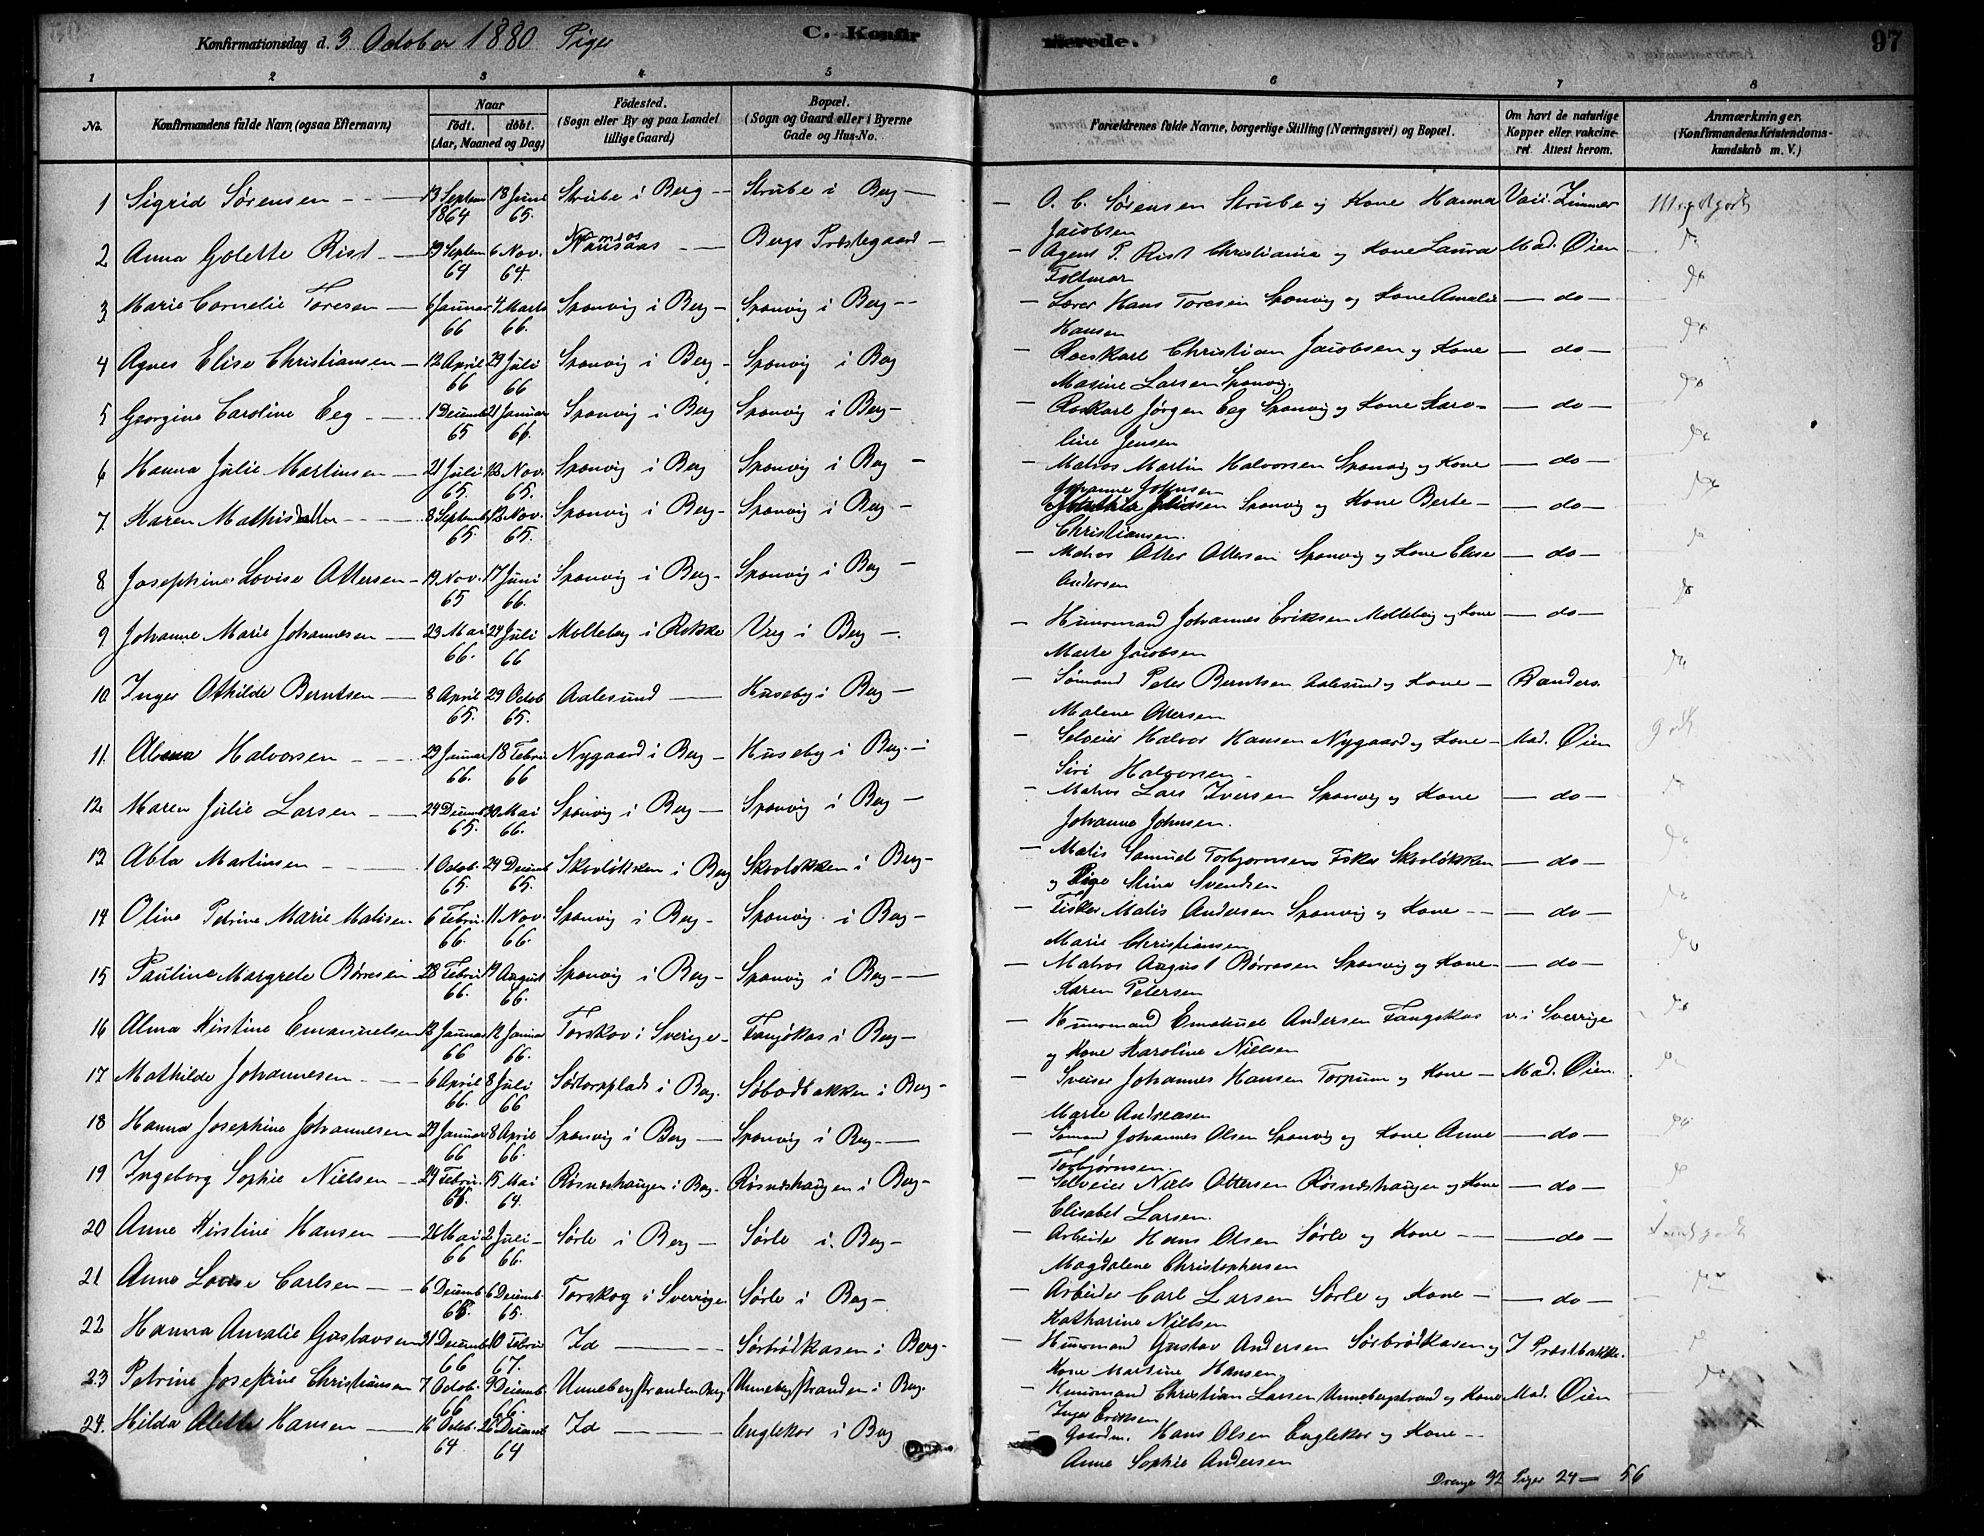 Konfirmationsdag d. 3 October 1880 Piger C. Konfirmerede. 97
1 2 3 4 5 6 7 8
No. Konfirmandens fulde Navn (ogsaa Efternavn) Naar födt. döbt. (Aar, Maaned og Dag) Födested. (Sogn eller By og paa Landet tillige Gaard) Bopæl. (Sogn og Gaard eller i Byerne Gade og Hus-No. Forældrenes fulde Navne, borgerlige Stilling (Næringsvei) og Bopæl. Om havt de naturlige Kopper eller vaccineret. Attest herom. Anmærkninger. (Konfirmandens Kristendomskundskab m. V.)
1 Sigrid Sørensen 13 Septem 1864 18 Juni 65. Strube i Berg Strube i Berg O. C. Sørensen Strube og Kone Hanna Jacobsen Meget godt
2 Anna Golette Rist 29 Septem 64 6 Nov. 64. Namsos Bergs Præstegaard Agent P. Rist Christiania og Kone Laura Foltmar Mad. Øien do
3 Marie Cornelie Toresen 6 Januar 66 4 Marts 66. Sponvig i Berg Sponvig i Berg Lærer Hans Toresen Sponvig og Kone Amalie Hansen do do
4 Agnes Elise Christiansen 12 April 66 29 Juli 66 Sponvig i Berg Sponvig i Berg Roeskarl Christian Jacobsen og Kone Masine Larsen Sponvig. do do
5 Georgine Caroline Eeg 1 Decemb 65 21 Januar 66. Sponvig i Berg Sponvig i Berg Roskarl Jørgen Eeg Sponvig og Kone Karoline Jensen do do
6 Hanna Julie Martinsen 21 Juli 65. 12 Nov. 65. Sponvig i Berg Sponvig i Berg Matros Martin Halvorsen Sponvig og Kone Johanne Johnsen do do
7 Karen Mathisdatter 8 Septemb 65 12 Nov. 65. Sponvig i Berg Sponvig i Berg Sponvig og Kone Berte Christiansen. do do
8 Josephine Lovise Ottersen 19 Nov. 65 17 Juni 66. Sponvig i Berg Sponvig i Berg Matros Otter Ottersen Sponvig og Kone Elise Andersen do do
9 Johanne Marie Johannesen 23 Mai 66. 24 Juli 66 Molteby i Rokke Veg i Berg Husmand Johannes Eriksen Molteberg og Kone Marte Jacobsen do do
10 Inger Othilde Berntsen 8 April 65. 29 Octob 65. Aalesund Huseby i Berg Sømand Peter Berntsen Aalesund og Kone Malene Ottersen R anders. do
11. Halvorsen 29 Januar 66. 18 Febru 66 Nygaard i Berg Huseby i Berg Selveier Halvor Hansen Nygaard og Kone Siri Halvorsen Mad. Øien godt
12 Maren Julie Larsen 24 Decemb 65. 20 Mai 66. Sponvig i Berg Sponvig i Berg Matros Lars Iversen Sponvig og Kone Johanne Johnsen. do do
13 Abla Martinsen 1 Octob. 65. 24 Decemb 65. Skovløkken i Berg Skovløkken i Berg Matis Samuel Torbjørnsen Fisker Skovløkken og Pige Stine Svendsen do do
14 Oline Petrine Marie Matisen 6 Febru. 66. 11 Nov. 66. Sponvig i Berg Sponvig i Berg Fisker Matis Andersen Sponvig og Kone Marie Christiansen do do
15 Pauline Margrete Børresen 28 Febru 66. 19 August 66. Sponvig i Berg Sponvig i Berg Matros August Børresen Sponvig og Kone Karen Petersen do do
16 Alma Kirstine Emanuelsen 12 Januar 66 12 Januar 66. Torskov i Sverige i Berg Husmand Emanuel Andersen og Kone Karoline Nielsen v. i Sverrige do
17 Mathilde Johannesen 6 April 66. 8 Juli 66 Sødtorpplads i Berg. i Berg Sveiser Johannes Hansen Torpum og Kone Marte Andreasen Mad. Øien. do
18 Hanna Josephine Johannesen 23 Januar 66 8 April 66. Sponvig i Berg Sponvig i Berg Sømand Johannes Olsen Sponvig og Kone Anne Torbjørnsen. do do
19 Ingeborg Sophie Nielsen 24 Febru. 15 Mai 64. Røsneshaugen i Berg Røsneshaugen i Berg Selveier Niels Ottersen Røsneshaugen og Kone Elisabet Larsen. do do
20 Anne Kirstine Hansen 26 Mai 66 2 Juli 66. Sørle i Berg Sørle i Berg Arbeider Hans Olsen Sørle og Kone Magdalene Christophersen do
21 Anna Lovise Carlsen 6 Decemb 65. 6 Decemb 65. Torskog i Sverrige Sørle i Berg Arbeider Carl Larsen Sørle og Kone Katharine Nielsen do do
22 Hanna Amalie Gustavsen 31 Decemb 66 10 Febru 67. Id Sørbrødkasen i Berg Husmand Gustav Andersen Sørbrødkasen og Kone Martine Hansen I Præstbakke. do
23 Petrine Josefine Christiansen 7 Octob. 66 9 Decemb 66. Unnebergstranden Berg Unnebergstranden i Berg. Husmand Christian Larsen Unnebergstrand og Kone Inger Eriksen Mad. Øien do
24. Hilda Alette Hansen 16 Octob. 64 26 Decemb 64 Id Englekor i Berg Gaardm. Hans Olsen Englekor og Kone Anne Sophie Andersen
Drenge 32 Piger 24 — 56